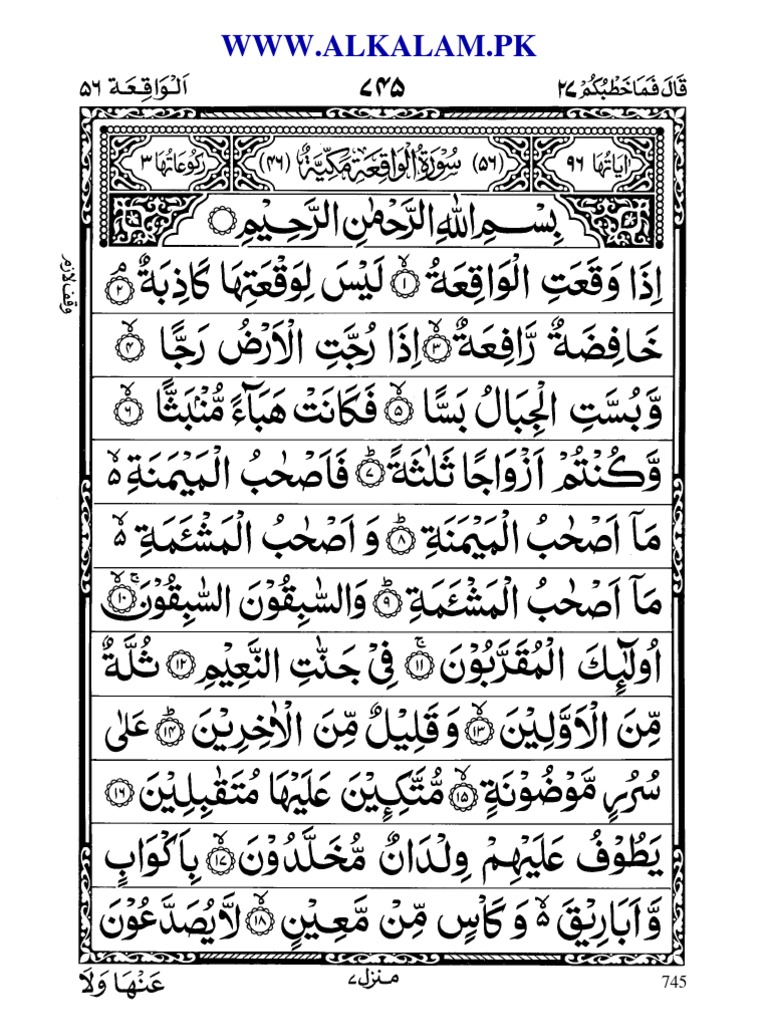 WWW.ALKALAM.PK
قَالَ فَمَا خَطْبُكُمْ ۲۷ ۷۴۵ اَلْوَاقِعَة ۵۶
اٰيَاتُهَا ۹۶ (۵۶) سُوْرَةُ الْوَاقِعَةِ مَكِّيَّةٌ (۴۶) رُكُوْعَاتُهَا ۳
بِسْمِ اللّٰهِ الرَّحْمٰنِ الرَّحِيْمِ
اِذَا وَقَعَتِ الْوَاقِعَةُ ۙ﴿۱﴾ لَيْسَ لِوَقْعَتِهَا كَاذِبَةٌ ۘ﴿۲﴾
وقف لازم
خَافِضَةٌ رَّافِعَةٌ ۙ﴿۳﴾ اِذَا رُجَّتِ الْاَرْضُ رَجًّا ۙ﴿۴﴾
وَّبُسَّتِ الْجِبَالُ بَسًّا ۙ﴿۵﴾ فَكَانَتْ هَبَآءً مُّنْۢبَثًّا ۙ﴿۶﴾
وَّكُنْتُمْ اَزْوَاجًا ثَلٰثَةً ؕ﴿۷﴾ فَاَصْحٰبُ الْمَيْمَنَةِ ۙ۬
مَاۤ اَصْحٰبُ الْمَيْمَنَةِ ؕ﴿۸﴾ وَ اَصْحٰبُ الْمَشْـَٔمَةِ ۙ۬
مَاۤ اَصْحٰبُ الْمَشْـَٔمَةِ ؕ﴿۹﴾ وَالسّٰبِقُوْنَ السّٰبِقُوْنَ ۚۙ﴿۱۰﴾
اُولٰٓئِكَ الْمُقَرَّبُوْنَ ۚ﴿۱۱﴾ فِيْ جَنّٰتِ النَّعِيْمِ ﴿۱۲﴾ ثُلَّةٌ
مِّنَ الْاَوَّلِيْنَ ۙ﴿۱۳﴾ وَ قَلِيْلٌ مِّنَ الْاٰخِرِيْنَ ؕ﴿۱۴﴾ عَلٰى
سُرُرٍ مَّوْضُوْنَةٍ ۙ﴿۱۵﴾ مُّتَّكِـِٕيْنَ عَلَيْهَا مُتَقٰبِلِيْنَ ﴿۱۶﴾
يَطُوْفُ عَلَيْهِمْ وِلْدَانٌ مُّخَلَّدُوْنَ ۙ﴿۱۷﴾ بِاَكْوَابٍ
وَّ اَبَارِيْقَ ۙ۬ وَ كَاْسٍ مِّنْ مَّعِيْنٍ ۙ﴿۱۸﴾ لَّا يُصَدَّعُوْنَ
عَنْهَا وَلَا
منزل ۷
745